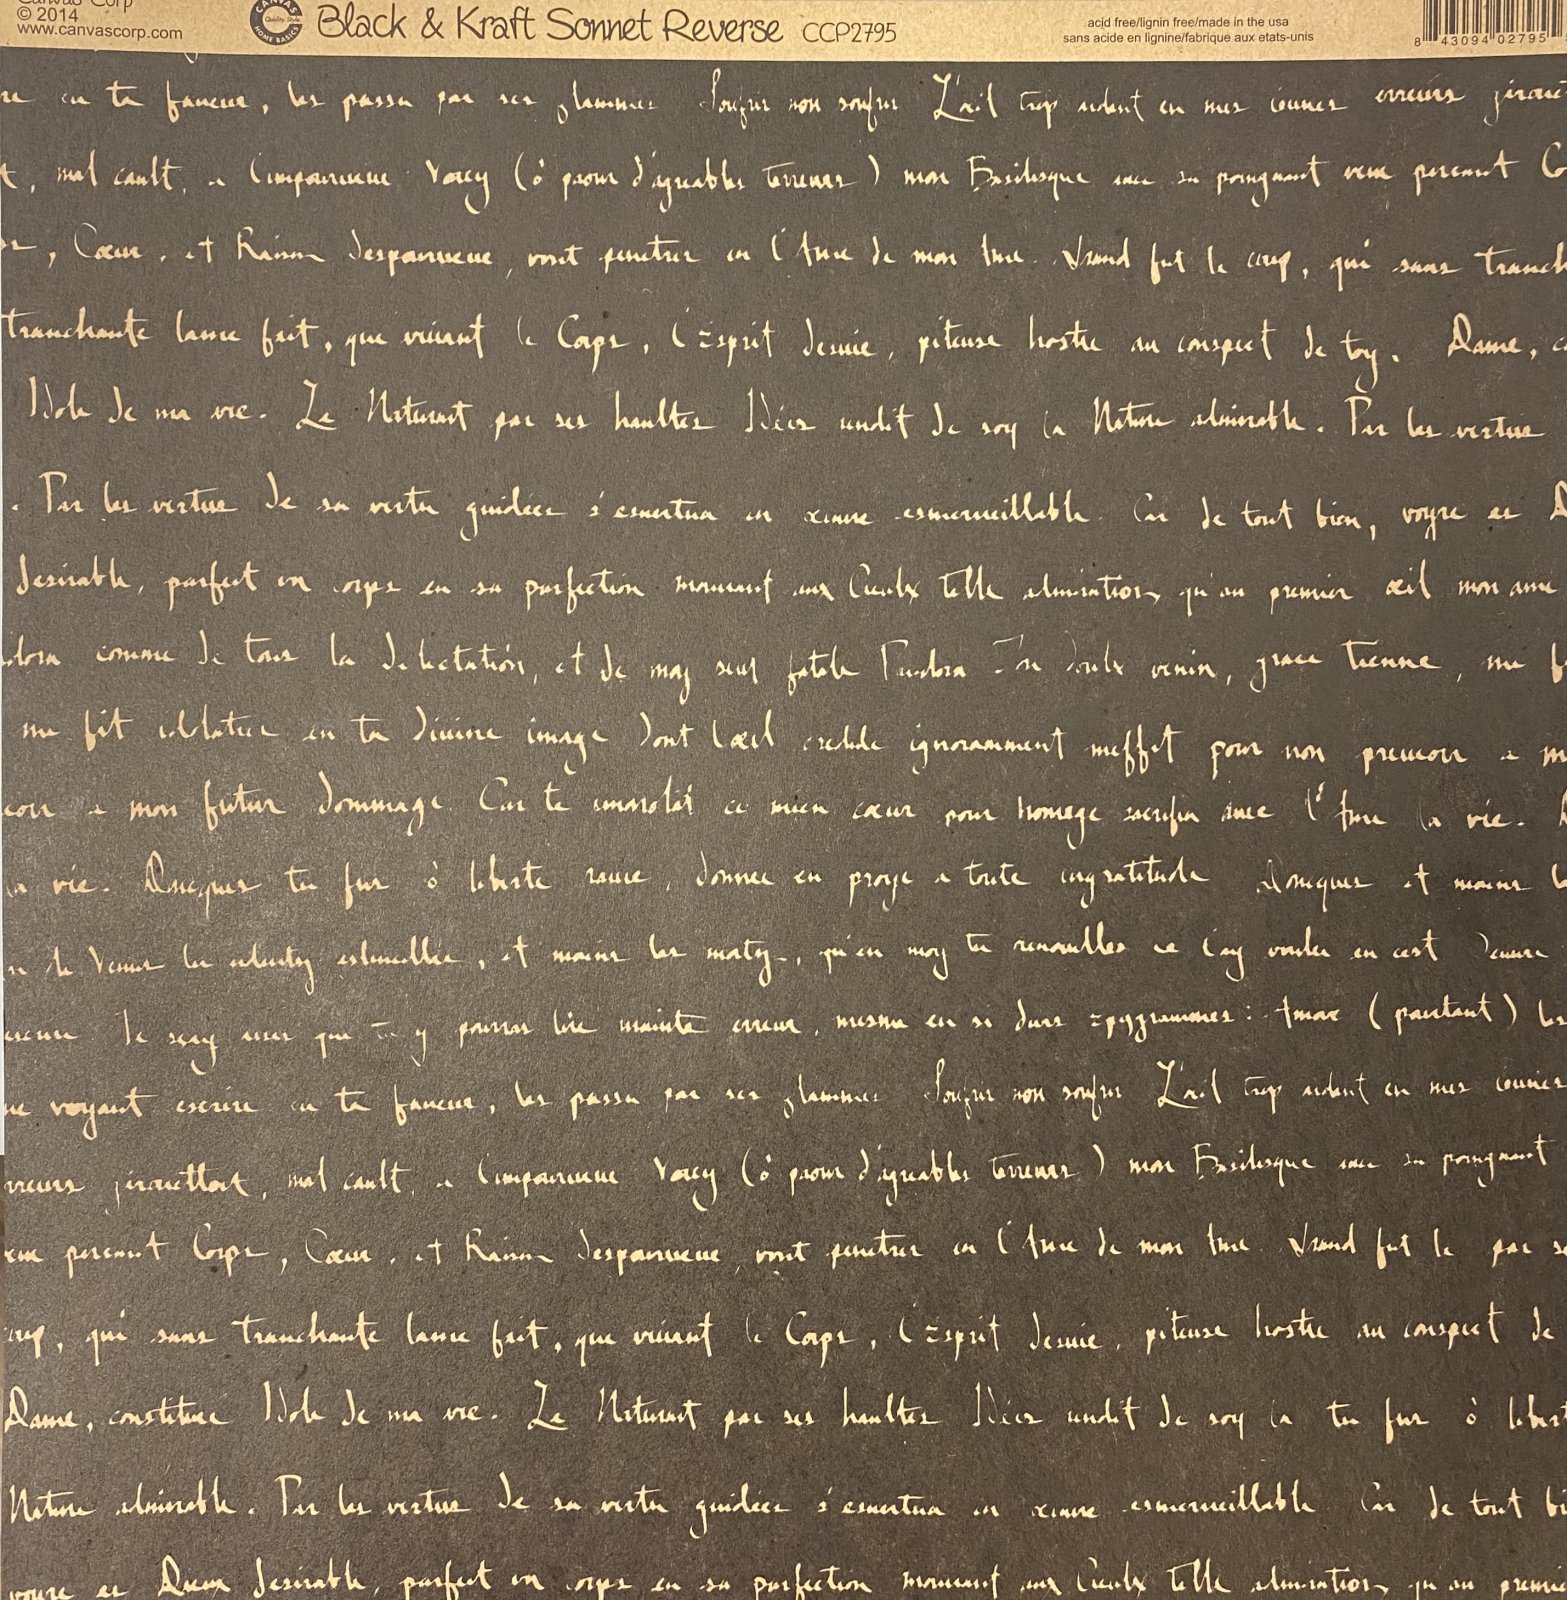 Canvas Corp
© 2014
www.canvascorp.com
CANVAS Quality Style HOME BASICS
Black & Kraft Sonnet Reverse CCP2795
acid free/lignin free/made in the usa
sans acide en lignine/fabrique aux etats-unis
8 43094 02795
en ta faueur, les passa par ses flammes Souffrir non souffrir L'œil trop ardent en mes ieunes erreurs
mal cault, a l'impourueue Voicy (ô paour d'agreables terreurs) mon Basilisque auec sa poingnant veue percant
Cœur, et Raison despourueue, vint penetrer en l'Ame de mon Ame. Grand fut le coup, qui sans
tranchante lame fait, que viuant le Corps, l'Esprit desuie, piteuse hostie au conspect de toy. Dame,
Idole de ma vie. Le Naturant par ses haultes Idées rendit de soy la Nature admirable. Par les vertus
. Par les vertus de sa vertu guidées s'esuertua en œuure esmerueillable Car de tout bien, voyre es
desirable, parfeit un corps en sa parfection mouuant aux Cieulx telle admiration, qu'au premier œil mon ame
comme de tous la delectation, et de moy seul fatale Pandora Ton doulx venin, grace tienne, me
me fit idolatrer en ta diuine image dont l'œil credule ignoramment meffit pour non preuoir a
a mon futur dommage Car te immolant ce mien cœur pour homage sacrifia auec l'Ame la vie.
la vie. Doncques tu fus ô liberté rauie, donnée en proye a toute ingratitude Doncques et moins
de Venus les ardentz estincelles, et moins les traictz, qu'en moy tu renouuelles ie t'ay voulu en cest Oeuure
Ie sçay asses que tu y pourras lire mainte erreur, mesme en si durs Epygrammes: Amour (pourtant) les
me voyant escrire en ta faueur, les passa par ses flammes Souffrir non souffrir L'œil trop ardent en mes ieunes
girouettoit, mal cault, a l'impourueue Voicy (ô paour d'agreables terreurs) mon Basilisque auec sa poingnant
percant Corps, Cœur, et Raison despourueue, vint penetrer en l'Ame de mon Ame. Grand fut le
coup, qui sans tranchante lame fait, que viuant le Corps, l'Esprit desuie, piteuse hostie au conspect de
Dame, constituée Idole de ma vie. Le Naturant par ses haultes Idées rendit de soy la tu fus ô
Nature admirable. Par les vertus de sa vertu guidées s'esuertua en œuure esmerueillable Car de tout
voyre es Dieux desirable, parfeit un corps en sa parfection mouuant aux Cieulx telle admiration, qu'au